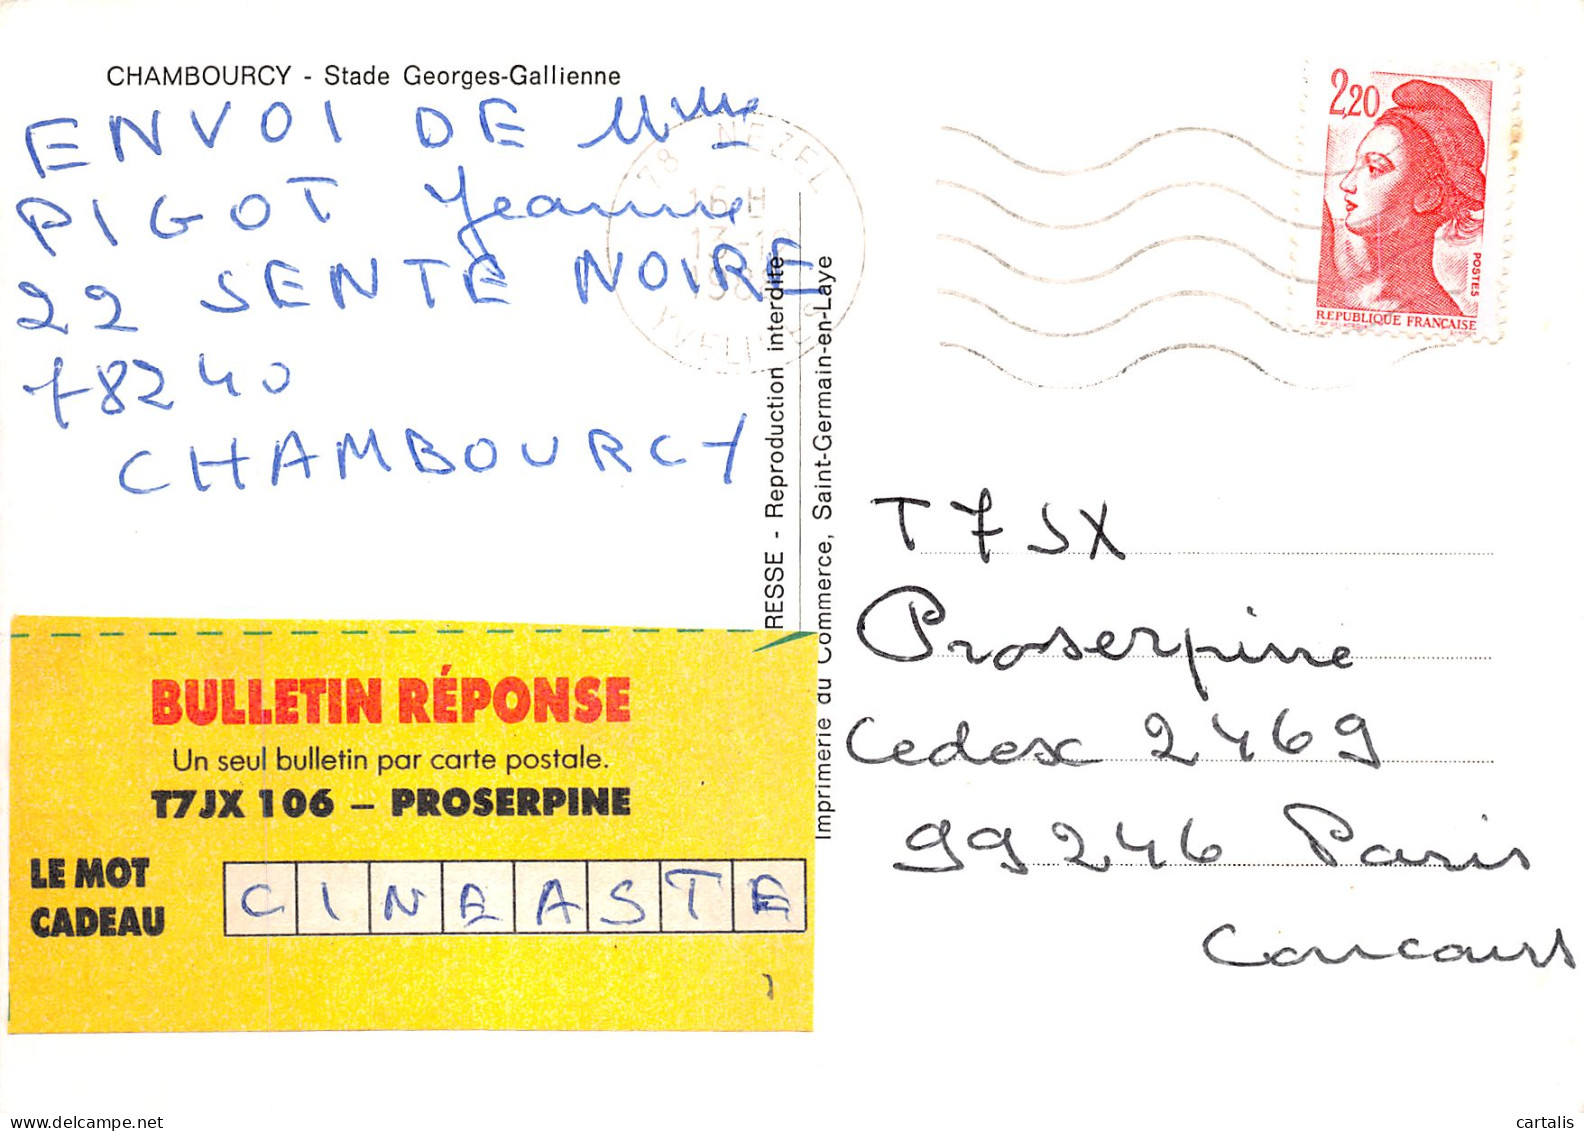 CHAMBOURCY - Stade Georges-Gallienne
ENVOI DE Mme
PIGOT Jeanne
22 SENTE NOIRE
78240
CHAMBOURCY
78 NEZEL
16 H
13-
198
YVELINES
2,20
POSTES
REPUBLIQUE FRANÇAISE
RESSE - Reproduction interdite
Imprimerie du Commerce, Saint-Germain-en-Laye
T7JX
Proserpine
Cedex 2469
99246 Paris
Concours
BULLETIN RÉPONSE
Un seul bulletin par carte postale.
T7JX 106 – PROSERPINE
LE MOT
CADEAU
CINEASTE
cartalis